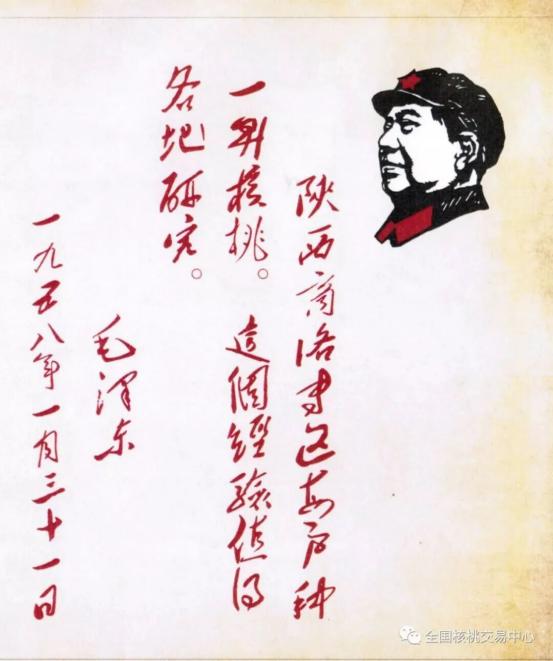 陕西商洛专区每户种
一升核桃。這個經驗值得
各地研究。
毛泽东
一九五八年一月三十一日
全国核桃交易中心